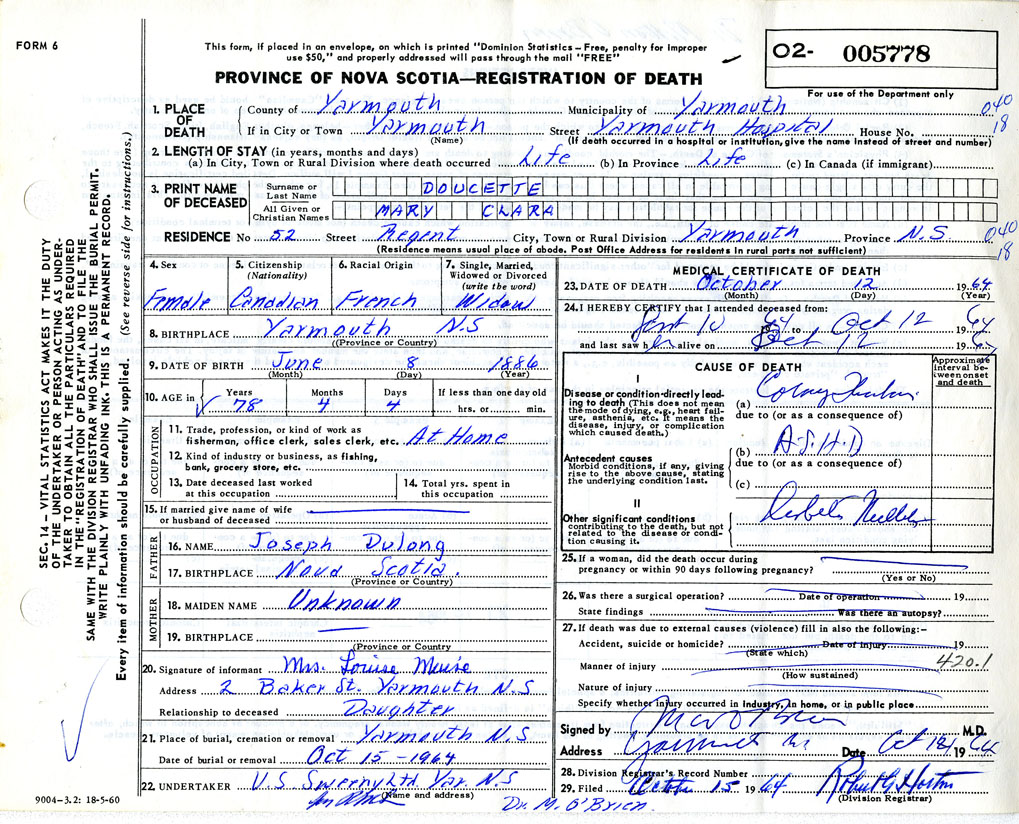 FORM 6
This form, if placed in an envelope, on which is printed "Dominion Statistics – Free, penalty for improper
use $50," and properly addressed will pass through the mail "FREE"
O2- 005778
For use of the Department only
PROVINCE OF NOVA SCOTIA—REGISTRATION OF DEATH
1. PLACE OF DEATH
County of Yarmouth Municipality of Yarmouth 040
If in City or Town Yarmouth Street Yarmouth Hospital House No. 18
(Name) (If death occurred in a hospital or institution, give the name instead of street and number)
2. LENGTH OF STAY (in years, months and days)
(a) In City, Town or Rural Division where death occurred Life (b) In Province Life (c) In Canada (if immigrant)
3. PRINT NAME OF DECEASED
Surname or Last Name DOUCETTE
All Given or Christian Names MARY CLARA
RESIDENCE No 52 Street Regent City, Town or Rural Division Yarmouth Province N.S 040
(Residence means usual place of abode. Post Office Address for residents in rural parts not sufficient) 18
4. Sex Female
5. Citizenship (Nationality) Canadian
6. Racial Origin French
7. Single, Married, Widowed or Divorced (write the word) Widow
8. BIRTHPLACE Yarmouth N.S
(Province or Country)
9. DATE OF BIRTH June 8 1886
(Month) (Day) (Year)
10. AGE in Years 78 Months 4 Days 4 If less than one day old hrs. or min.
OCCUPATION
11. Trade, profession, or kind of work as
fisherman, office clerk, sales clerk, etc. At Home
12. Kind of industry or business, as fishing,
bank, grocery store, etc.
13. Date deceased last worked
at this occupation
14. Total yrs. spent in
this occupation
15. If married give name of wife
or husband of deceased
FATHER
16. NAME Joseph Dulong
17. BIRTHPLACE Nova Scotia.
(Province or Country)
MOTHER
18. MAIDEN NAME Unknown
19. BIRTHPLACE
(Province or Country)
20. Signature of informant Mrs. Louise Muise
Address 2 Baker St. Yarmouth N.S
Relationship to deceased Daughter
21. Place of burial, cremation or removal Yarmouth N.S
Date of burial or removal Oct 15-1964
22. UNDERTAKER V.S Sweeny Ltd Yar. N.S
(Name and address)
9004–3.2: 18-5-60
Dr. M. O'Brien.
MEDICAL CERTIFICATE OF DEATH
23. DATE OF DEATH October 12 1964
(Month) (Day) (Year)
24. I HEREBY CERTIFY that I attended deceased from:
Sept 10 1964 to Oct 12 1964
and last saw her alive on Oct 12 196
CAUSE OF DEATH
Approximate interval between onset and death
I
Disease or condition directly leading to death (This does not mean the mode of dying, e.g., heart failure, asthenia, etc. It means the disease, injury, or complication which caused death.)
(a)
due to (or as a consequence of)
Antecedent causes
Morbid conditions, if any, giving rise to the above cause, stating the underlying condition last.
(b) A.S.H.D
due to (or as a consequence of)
(c)
II
Other significant conditions
contributing to the death, but not related to the disease or condition causing it.
25. If a woman, did the death occur during
pregnancy or within 90 days following pregnancy?
(Yes or No)
26. Was there a surgical operation? Date of operation 19
State findings Was there an autopsy?
27. If death was due to external causes (violence) fill in also the following:–
Accident, suicide or homicide? Date of injury 19
(State which)
420.1
Manner of injury
(How sustained)
Nature of injury
Specify whether injury occurred in industry, in home, or in public place
Signed by M.D.
Address Date Oct 1964
28. Division Registrar's Record Number
29. Filed October 15 1964
(Division Registrar)
SEC. 14 – VITAL STATISTICS ACT MAKES IT THE DUTY
OF THE UNDERTAKER OR PERSON ACTING AS UNDER-
TAKER TO OBTAIN ALL THE PARTICULARS REQUIRED
IN THE "REGISTRATION OF DEATH" AND TO FILE THE
SAME WITH THE DIVISION REGISTRAR WHO SHALL ISSUE THE BURIAL PERMIT.
WRITE PLAINLY WITH UNFADING INK. THIS IS A PERMANENT RECORD.
Every item of information should be carefully supplied. (See reverse side for instructions.)